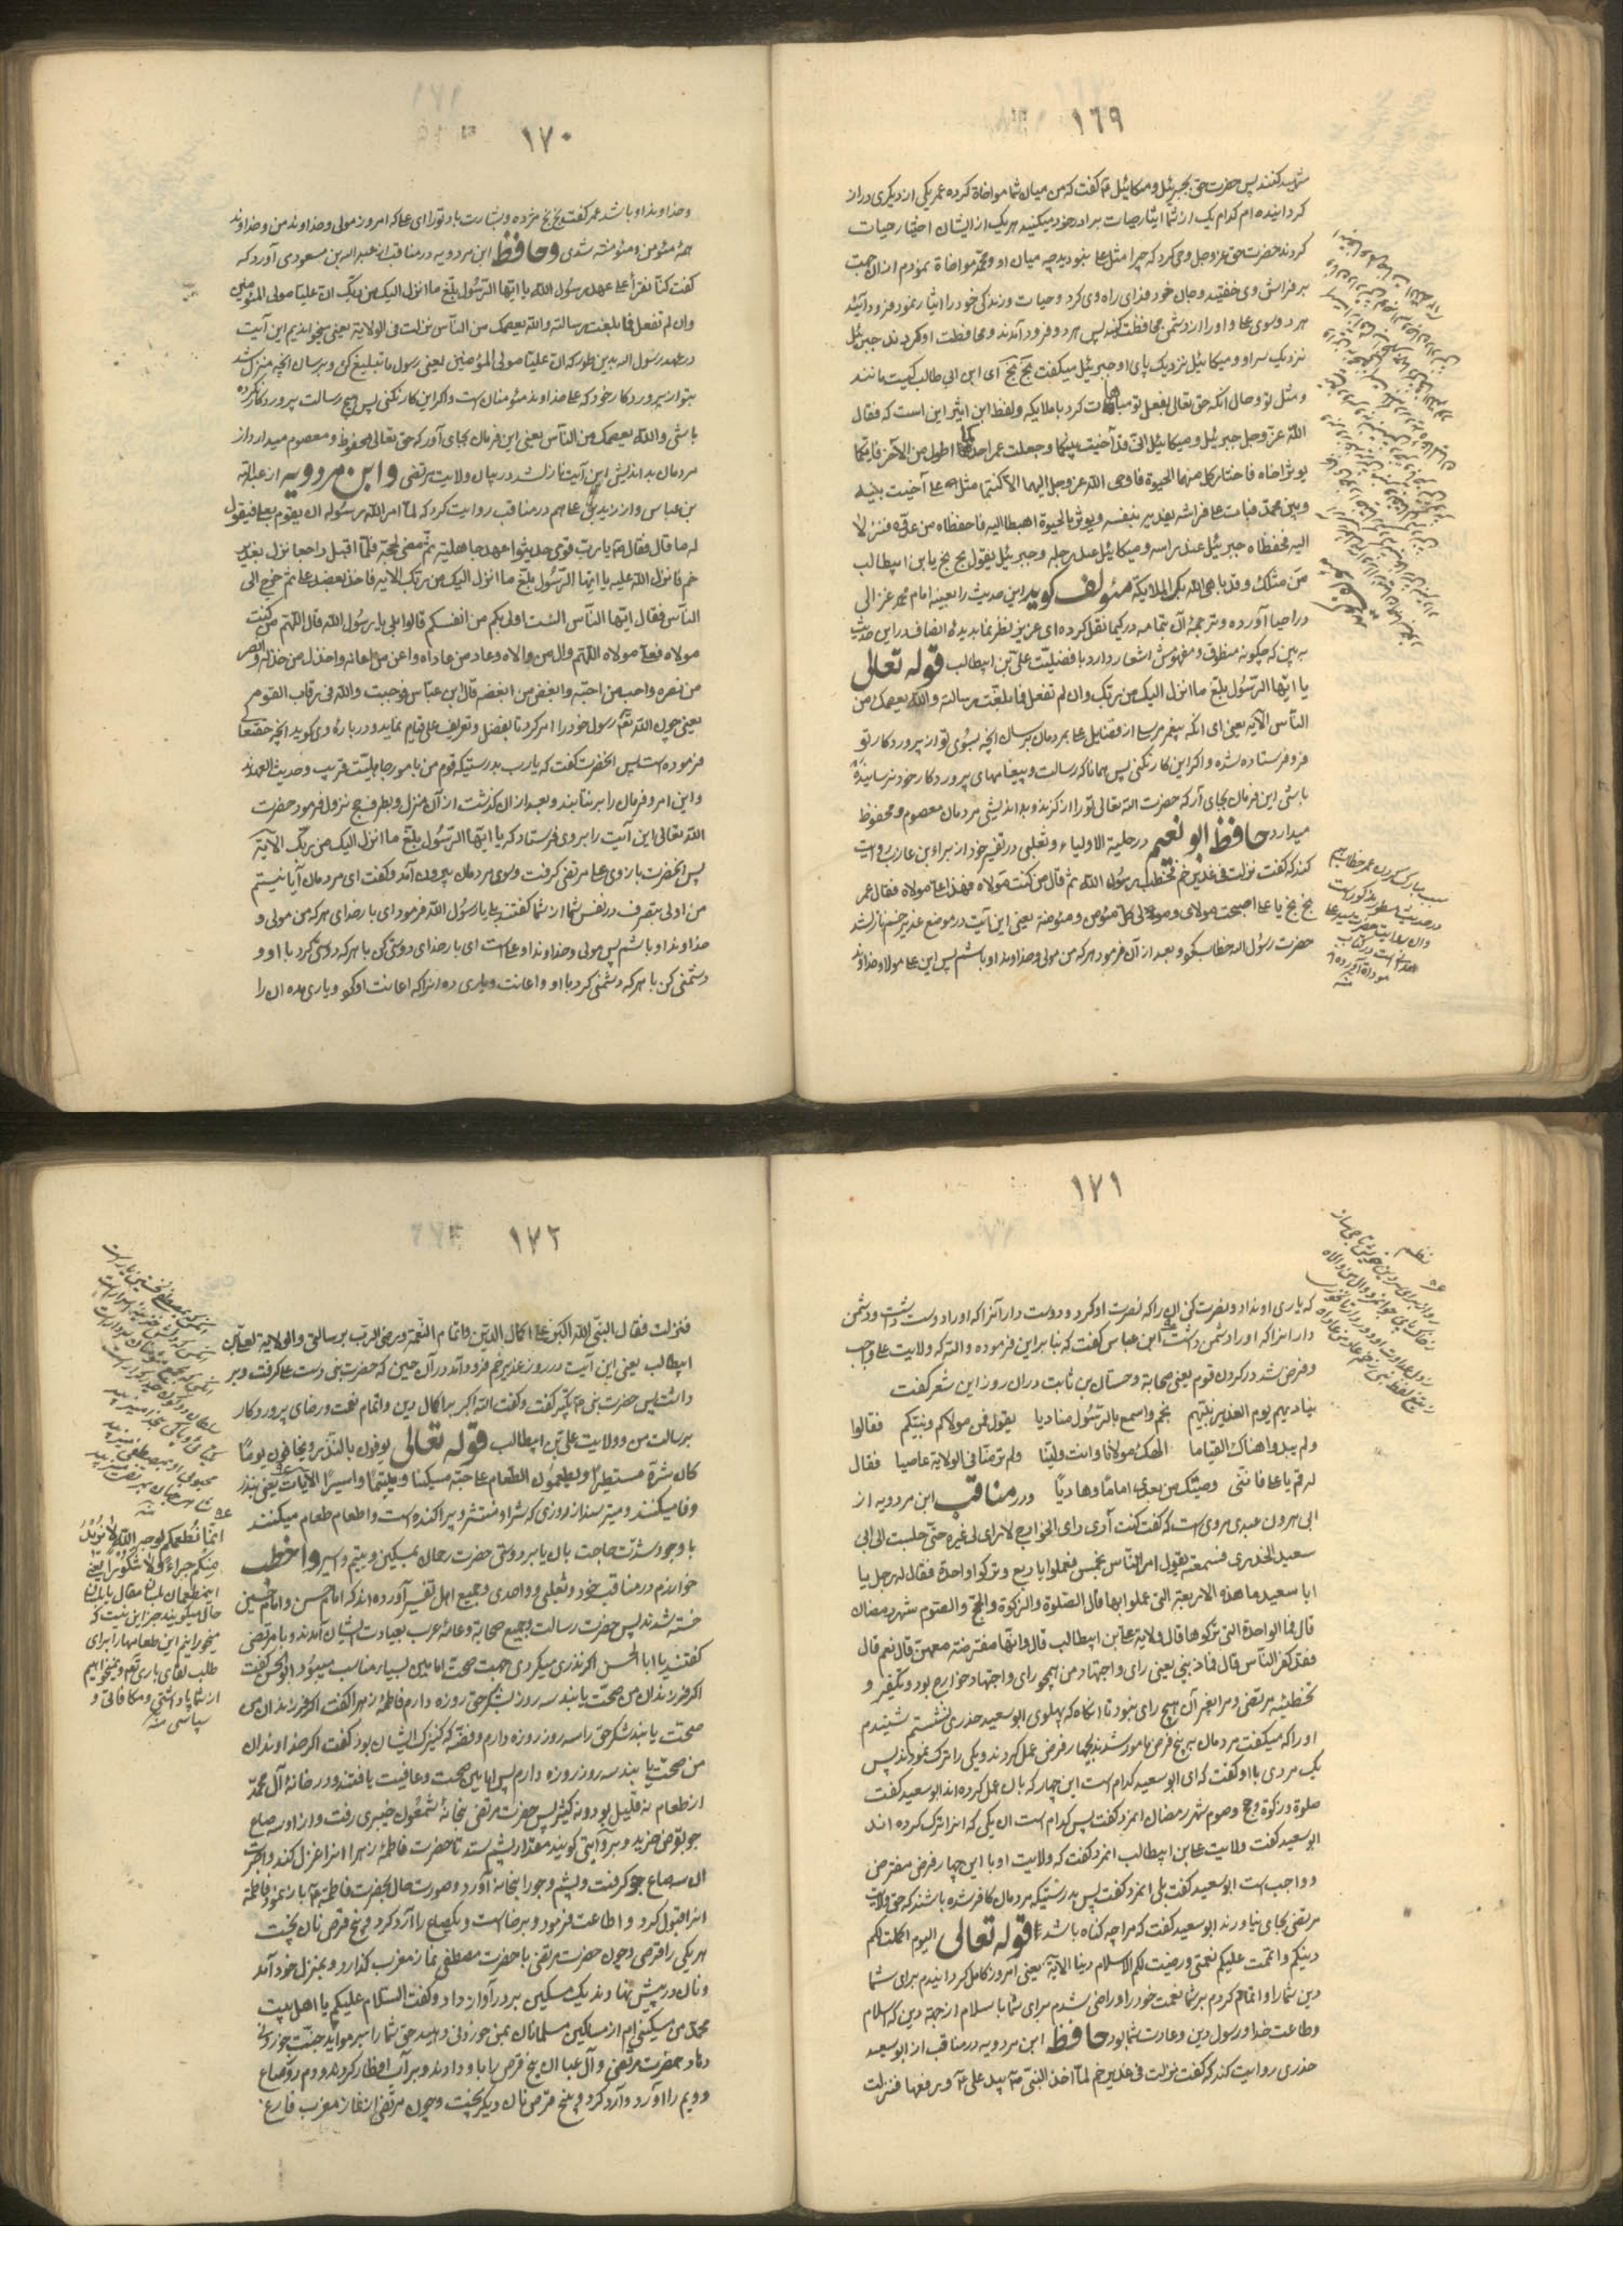 ١٦٩
شهید کنند پس حضرت حق بجبرئیل و میکائیل گفت که من میان شما مواخاة کرده عمر یکی از دیگری دراز
کردانیده ام کدام یک از شما ایثار حیات برادر خود میکنید هر یک از ایشان اختیار حیات
کردند حضرت حق عز و جل وحی کرد که چرا مثل علی نبودید چه میان او و محمد مواخاة نمودم از ان جهت
بر فراش وی خفتید و جان خود فدای راه وی کرد و حیات و زندکی خود را ایثار نمود فرود آئید
هر دو سوی علی و او را از دشمن محافظت کنید پس هر دو فرود آمدند و محافظت او کردند جبرئیل
نزدیک سر او و میکائیل نزدیک پای او جبرئیل میکفت بخ بخ ای ابن ابی طالب کیست مانند
و مثل تو و حال آنکه حق تعالی بفعل تو مباهات کرد با ملایکه و لفظ ابن اثیر این است که فقال
الله عز و جل جبرئیل و میکائیل انی قد آخیت بینکما و جعلت عمر احدکما اطول من الآخر فایکما
یوثر اخاه فاختار کل منهما الحیوة فاوحی الله عز و جل الیهما الا کنتما مثل علی آخیت بینه
و بین محمد فبات علی فراشه یفدیه بنفسه و یوثره بالحیوة اهبطا الیه فاحفظاه من عدوه فنزلا
الیه فحفظاه جبرئیل عند راسه و میکائیل عند رجله و جبرئیل یقول بخ بخ یا بن ابیطالب
من مثلک و قد باهی الله بک الملایکة مئولف کوید این حدیث را بعینه امام محمد غزالی
در احیا آورده و ترجمهٔ آن بتمامه در کیمیا نقل کرده ای عزیز نظر نما بدیدهٔ انصاف در این حدیث
به بین که چکونه منطوق و مفهومش اشعار دارد با فضلیت علی بن ابیطالب قوله تعالی
یا ایها الرسول بلغ ما انزل الیک من ربک و ان لم تفعل فما بلغت رسالته و الله یعصمک من
الناس الآیه یعنی ای انکه پیغمبر مرسا از فضایل علی بمردمان برسان انچه بسوی تو از پروردکار تو
فرو فرستاده شده و اکر این کار نکنی پس همانا که رسالت و پیغامهای پروردکار خود نرسانیده
باشی این فرمان بجای آر که حضرت الله تعالی تو را از کزند و بد اندیشی مردمان معصوم و محفوظ
میدارد حافظ ابو نعیم در حلیة الاولیاء و ثعلبی در تفسیر خود از براء بن عازب روایت
کند که گفت نزلت فی غدیر خم فخطب رسول الله ثم قال من کنت مولاه فهذا علی مولاه فقال عمر
بخ بخ یا علی اصبحت مولای و مولی کل مئومن و مئومنة یعنی این آیت در موضع غدیر خم نازل شد
حضرت رسول اله خطاب نمود و بعد از آن فرمود هر که من مولی و خداوند او باشم پس این علی مولا و خداوند
سبب مبارک کردن عمر خطاب هم
در حدیث مسطور مذکور است
١٧٠
و خداوند او باشد عمر کفت بخ بخ مژده و بشارت باد تو را ای علی که امروز مولی و خداوند من و خداوند
همهٔ مئومن و مئومنه شدی و حافظ ابن مردویه در مناقب از عبد اله بن مسعودی آورد که
کفت کنا نقرأ علی عهد رسول الله یا ایها الرسول بلغ ما انزل الیک من ربک ان علیا مولی المئومنین
و ان لم تفعل فما بلغت رسالته و الله یعصمک من الناس نزلت فی الولایة یعنی میخواندیم این آیت
در عهد رسول اله بدین طور که ان علیا مولی المؤمنین یعنی رسول ما تبلیغ کن و برسان انچه منزل شد
بتو از پروردکار خود که علی خداوند مئومنان است و اکر این کار نکنی پس هیچ رسالت پروردکار نکرده
باشی و الله یعصمک من الناس یعنی این فرمان بجای آور که حق تعالی محفوظ و معصوم میدارد از
مردمان بد اندیش این آیت نازل شد در بیان ولایت مرتضی و ابن مردویه از عبد الله
بن عباس و از زید بن علی هم در مناقب روایت کرد که لما امر الله رسوله ان یقوم بعلی فیقول
له ما قال فقال یا رب قومی حدیثوا عهد بجاهلیة ثم مضی بحجه فلما اقبل راجعا نزل بغدیر
خم فانزل الله علیه یا ایها الرسول بلغ ما انزل الیک من ربک الایه فاخذ بعضد علی ثم خرج الی
الناس فقال ایها الناس الست اولی بکم من انفسکم قالوا بلی یا رسول الله قال اللهم من کنت
مولاه فعلی مولاه اللهم وال من والاه و عاد من عاداه و اعن من اعانه و اخذل من خذله و انصر
من نصره و احب من احبه و ابغض من ابغضه قال ابن عباس فوجبت و الله فی رقاب القوم
یعنی چون الله تعالی رسول خود را امر کرد تا بفضل و تعریف علی قیام نماید و در بارهٔ وی کوید انچه حقتعالی
فرموده است پس انحضرت کفت که یا رب بدرستیکه قوم من بامور جاهلیت قریب و حدیث العهدند
و این امر و فرمان را برنتابند و بعد از ان کذشت از آن منزل و بطرف حج نزول فرمود حضرت
الله تعالی این آیت را بر وی فرستاد که یا ایها الرسول بلغ ما انزل الیک من ربک الآیة
پس انحضرت بازوی علی مرتضی کرفت و بسوی مردمان بیرون آمد و کفت ای مردمان آیا نیستم
من اولی بتصرف در نفس شما از شما کفتند بلی یا رسول الله فرمود ای بار خدای هر که من مولی و
خداوند او باشم پس مولی و خداوند او علی است ای بار خدای دوستی کن با هر که دوستی کرد با او و
دشمنی کن با هر که دشمنی کرد با او و اعانت و یاری ده انرا که اعانت او کند و یاری مده ان را
١٧١
که یاری او نداد و نصرت کن ان را که نصرت او کرد و دوست دار آنرا که او را دوست داشت و دشمن
دار انرا که او را دشمن داشت ابن عباس کفت که بنا بر این فرموده و الله که ولایت علی واجب
و فرض شد در کردن قوم یعنی صحابة و حسان بن ثابت در ان روز این شعر کفت
ینادیهم یوم الغدیر نبیهم بخم و اسمع بالرسول منادیا یقول فمن مولاکم و نبیکم فقالوا
و لم یبدوا هناک التعامیا الهک مولانا و انت ولینا و لم تر منا فی الولایة عاصیا فقال
له قم یا علی فاننی رضیتک من بعدی اماما و هادیا و در مناقب ابن مردویه از
ابی هرون عبدی مروی است که کفت کنت آری رای الخوارج لا رای لی غیره حتی جلست الی ابی
سعید الخدری فسمعته یقول امر الناس بخمس فعملوا باربع و ترکوا واحدة فقال له رجل یا
ابا سعید ما هذه الاربعة التی عملوا بها قال الصلوة و الزکوة و الحج و الصوم شهر رمضان
قال فما الواحدة التی ترکوها قال ولایة علی بن ابیطالب قال و انها مفترضة معهن قال نعم قال
فقد کفر الناس قال فما ذنبی یعنی رای و اجتهاد من همچو رای و اجتهاد خوارج بود و تکفیر و
تخطئهٔ مرتضی و مرا بغیر آن هیچ رای نبود تا انکاه که پهلوی ابو سعید خدری نشستم شنیدم
او را که میکفت مردمان به پنج فرض مامور شدند بچهار فرض عمل کردند و یکی را ترک نمودند پس
یک مردی با او کفت که ای ابو سعید کدام است این چهار که بان عمل کرده اند ابو سعید کفت
صلوة و زکوة و حج و صوم شهر رمضان انمرد کفت پس کدام است ان یکی که انرا ترک کرده اند
ابو سعید کفت ولایت علی ابن ابیطالب انمرد کفت که ولایت او با این چهار فرض مفترض
و واجب است ابو سعید کفت بلی انمرد کفت پس بدرستیکه مردمان کافر شده باشند که حق ولایت
مرتضی بجای نیاورند ابو سعید کفت که مرا چه کناه باشد قوله تعالی الیوم اکملت لکم
دینکم و اتممت علیکم نعمتی و رضیت لکم الاسلام دینا الآیة یعنی امروز کامل کردانیدم برای شما
دین شما را و اتمام کردم بر شما نعمت خود را و راضی شدم برای شما با سلام از جهة دین که اسلام
و طاعت خدا و رسول دین و عادت شما بود حافظ ابن مردویه در مناقب از ابو سعید
خدری روایت کند که کفت نزلت فی غدیر خم لما اخذ النبی بید علی و رفعها فنزلت
نظم
١٧٢
فنزلت فقال النبی الله اکبر علی اکمال الدین و اتمام النعمة و رضی الرب برسالتی و الولایة لعلی بن
ابیطالب یعنی این آیت در روز غدیر خم فرود آمد در آن حین که حضرت نبی دست علی کرفت و بر
داشت پس حضرت نبی تکبیر کفت و کفت الله اکبر بر اکمال دین و اتمام نعمت و رضای پروردکار
برسالت من و ولایت علی بن ابیطالب قوله تعالی یوفون بالنذر و یخافون یوما
کان شره مستطیرا و یطعمون الطعام علی حبه مسکینا و یتیما و اسیرا الآیات یعنی بنذر
وفا میکنند و میترسند از روزی که شر او منتشر و پراکنده است و اطعام طعام میکنند
با وجود شدت حاجت بان یا بر دوستی حضرت رحمان بمسکین و یتیم و اسیر و اخطب
خوارزم در مناقب خود و ثعلبی و واحدی و جمیع اهل تفسیر آورده اند که امام حسن و امام حسین
خسته شدند پس حضرت رسالت و جمیع صحابة و عامهٔ عرب بعیادت ایشان آمدند و با مرتضی
کفتند یا ابا الحسن اکر نذری میکردی جهت صحت امامین بسیار مناسب میبود ابو الحسن کفت
اکر فرزندان من صحت یابند سه روز بشکر حق روزه دارم فاطمهٔ زهرا کفت اکر فرزندان من
صحت یابند شکر حق را سه روز روزه دارم و فضه که کنیزک ایشان بود کفت اکر خداوندان
من صحت یابند سه روز روزه دارم پس امامین صحت و عافیت یافتند و در خانهٔ آل محمد
از طعام نه قلیل بود و نه کثیر پس حضرت مرتضی بخانهٔ شمعون خیبری رفت و از او سه صاع
جو بقرض خرید و بروایتی کویند مقدار پشم ستد تا حضرت فاطمهٔ زهرا انرا غزل کند و اجرت
ان سه صاع جو کرفت و پشم و جو را بخانه آورد و صورت حال بحضرت فاطمه باز نمود فاطمه
انرا قبول کرد و اطاعت فرمود و برخاست و یکصاع را آرد کرد و پنج قرص نان پخت
هر یکی را قرصی و چون حضرت مرتضی با حضرت مصطفی نماز مغرب کذارد و بمنزل خود آمد
و نان در پیش نهادند یک مسکین بر در آواز داد و کفت السلام علیکم یا اهل بیت
محمد من مسکینی ام از مساکین مسلمانان بمن خوردنی دهید حق شما را بر مواید جنت خوردنی
دهاد حضرت مرتضی و آل عبا ان پنج قرص را باو دادند و بر آب افطار کردند و دوم روز صاع
دویم را آورد و آرد کرد و پنج قرص نان دیکر پخت و چون مرتضی از نماز مغرب فارغ
انما نطعمکم لوجه الله لا نرید
منکم جزاء و لا شکورا یعنی
میخورانیم این طعامها را برای
طلب لقای باری تعالی و نمیخواهیم
از شما پاداشتی و مکافاتی و
سپاسی